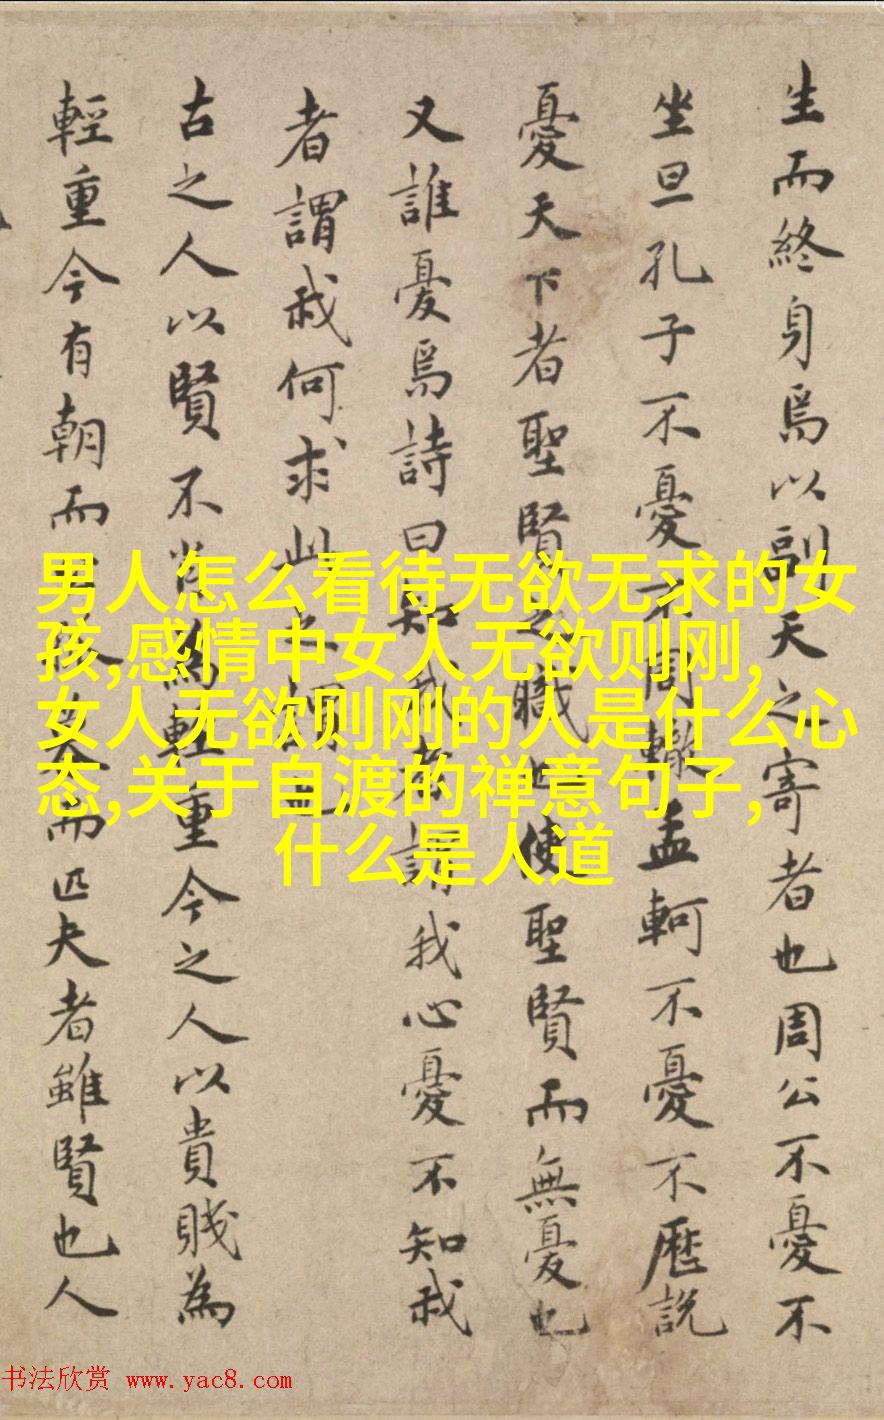 生而終身焉以副天之寄者也周公不憂不
坐旦孔子不憂不周轍孟軻不憂不歷說
憂天下者聖賢之職也使聖賢而無憂也
又誰憂焉詩曰知我者謂我心憂不知我
者謂我何求此之謂也
古之人以賢不肖為輕重今之人以貴賤為
輕重今有朝而而匹夫者雖賢也人
男人怎么看待无欲无求的女
孩,感情中女人无欲则刚,
女人无欲则刚的人是什么心
态,关于自渡的禅意句子,
什么是人道
书法欣赏 www.yac8.com